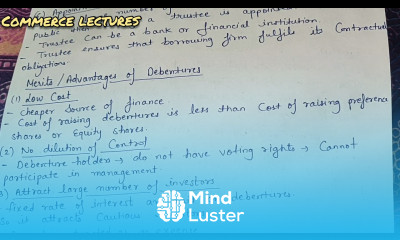 COMMERCE LECTURES
(6) Appoin
public number of
a trustee is appointe
- Trustee can be a bank or financial institution.
- Trustee ensures that borrowing firm fulfils its Contractual
obligations.
Merits / Advantages of Debentures
(1) Low Cost
- Cheaper source of finance.
- Cost of raising debentures is less than Cost of raising preference
shares or Equity shares.
(2) No dilution of Control
- Debenture-holders → do not have voting rights → Cannot
participate in management
Attract large number of investors
fixed rate of interest
debentures
so it attracts Cautious
Mind
Luster